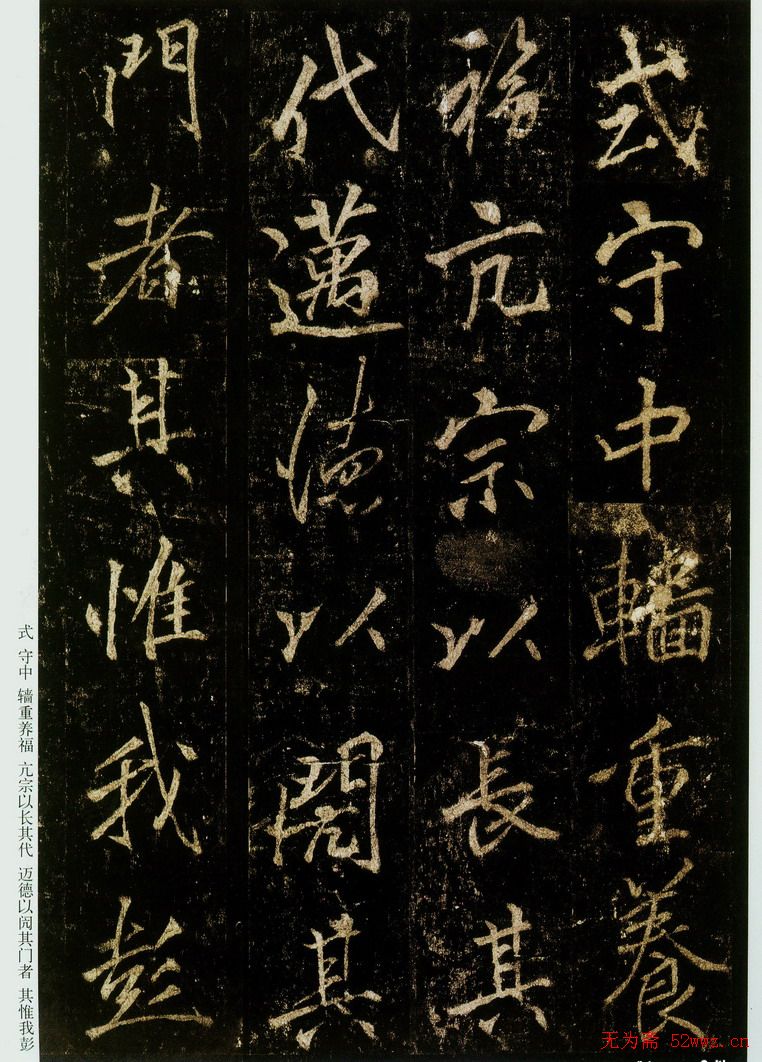 式守中轖重養
福亢宗以長其
代邁德以閲其
門者其惟我彭
式 守中 轖重养福 亢宗以长其代 迈德以阅其门者 其惟我彭
无为斋 52wwz.cn